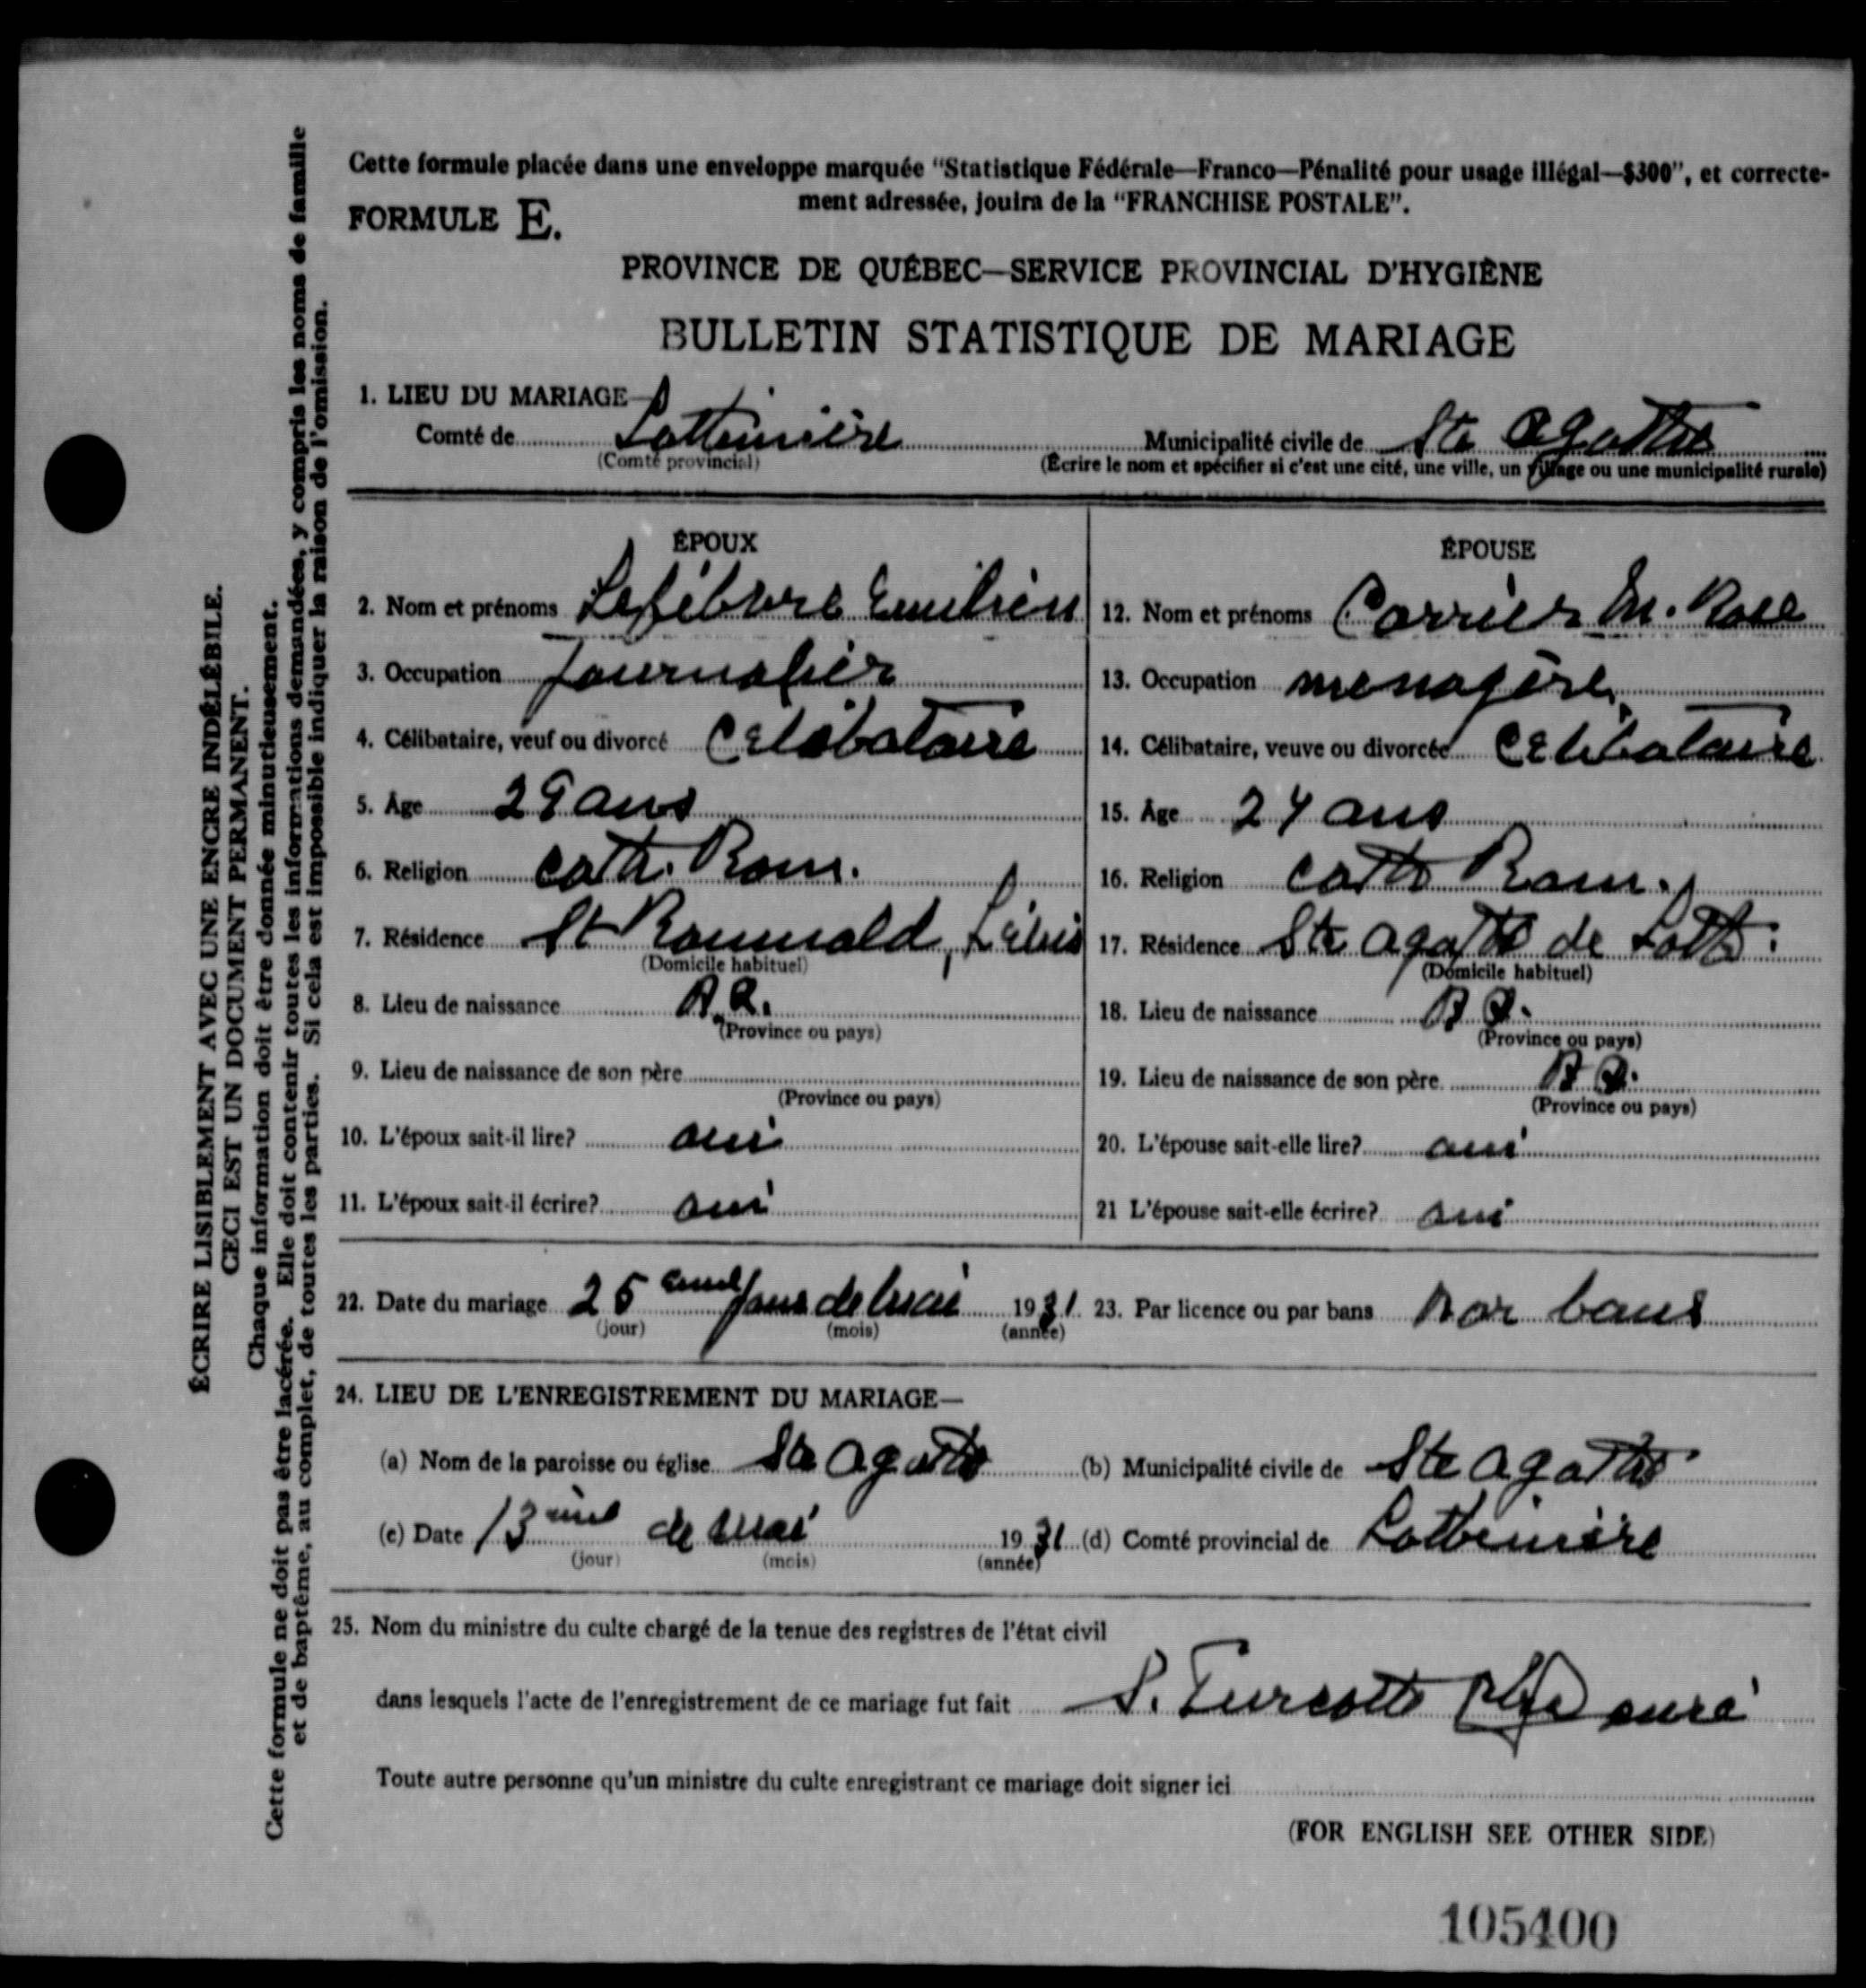 Cette formule placée dans une enveloppe marquée "Statistique Fédérale—Franco—Pénalité pour usage illégal—$300", et correcte-
ment adressée, jouira de la "FRANCHISE POSTALE".
FORMULE E.
PROVINCE DE QUÉBEC—SERVICE PROVINCIAL D'HYGIÈNE
BULLETIN STATISTIQUE DE MARIAGE
1. LIEU DU MARIAGE—
Comté de Lotbinière Municipalité civile de Ste Agathe
(Comté provincial) (Écrire le nom et spécifier si c'est une cité, une ville, un village ou une municipalité rurale)
ÉPOUX
2. Nom et prénoms Lefebvre Emilien
3. Occupation Journalier
4. Célibataire, veuf ou divorcé Célibataire
5. Âge 29 ans
6. Religion Cath. Rom.
7. Résidence St Romuald, Lévis
(Domicile habituel)
8. Lieu de naissance P.Q.
(Province ou pays)
9. Lieu de naissance de son père
(Province ou pays)
10. L'époux sait-il lire? oui
11. L'époux sait-il écrire? oui
ÉPOUSE
12. Nom et prénoms Carrier M. Rose
13. Occupation menagère
14. Célibataire, veuve ou divorcée Célibataire
15. Âge 24 ans
16. Religion Cath Rom.
17. Résidence Ste Agathe de Lotb.
(Domicile habituel)
18. Lieu de naissance P.Q.
(Province ou pays)
19. Lieu de naissance de son père P.Q.
(Province ou pays)
20. L'épouse sait-elle lire? oui
21 L'épouse sait-elle écrire? oui
22. Date du mariage 25 ème jour de mai 1931. 23. Par licence ou par bans par bans
(jour) (mois) (année)
24. LIEU DE L'ENREGISTREMENT DU MARIAGE—
(a) Nom de la paroisse ou église Ste Agathe (b) Municipalité civile de Ste Agathe
(c) Date 13 ème de mai 1931 (d) Comté provincial de Lotbinière
(jour) (mois) (année)
25. Nom du ministre du culte chargé de la tenue des registres de l'état civil
dans lesquels l'acte de l'enregistrement de ce mariage fut fait Turcotte Ptre curé
Toute autre personne qu'un ministre du culte enregistrant ce mariage doit signer ici
(FOR ENGLISH SEE OTHER SIDE)
105400
ÉCRIRE LISIBLEMENT AVEC UNE ENCRE INDÉLÉBILE.
CECI EST UN DOCUMENT PERMANENT.
Chaque information doit être donnée minutieusement.
Cette formule ne doit pas être lacérée. Elle doit contenir toutes les informations demandées, y compris les noms de famille
et de baptême, au complet, de toutes les parties. Si cela est impossible indiquer la raison de l'omission.